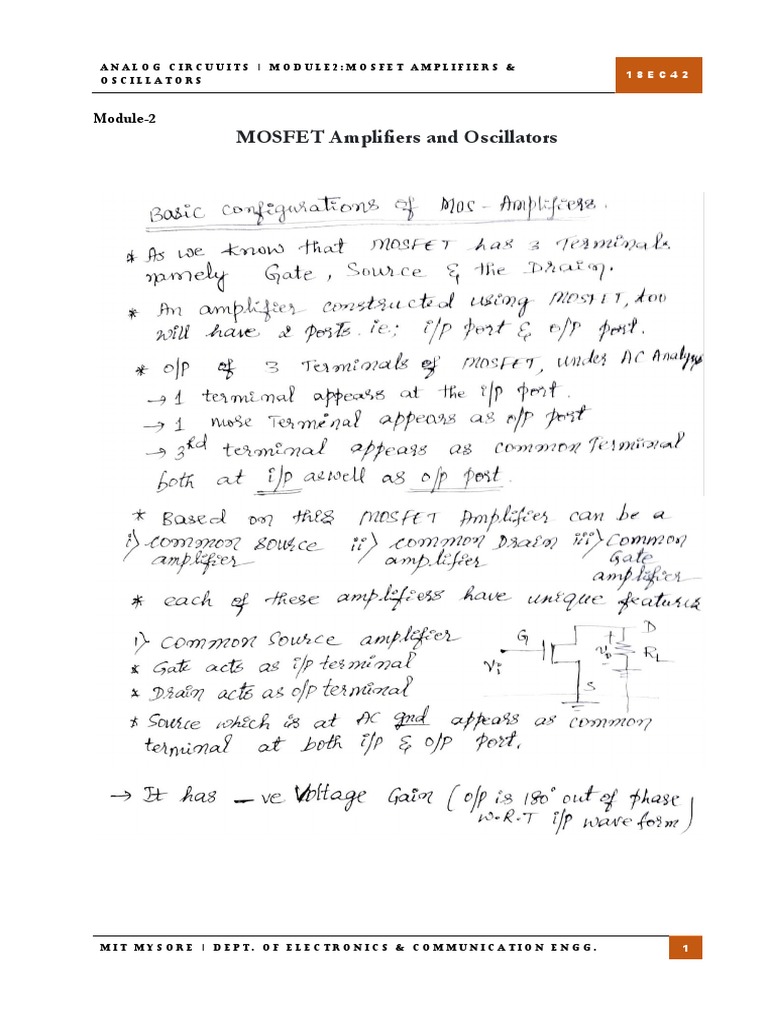 ANALOG CIRCUUITS | MODULE2:MOSFET AMPLIFIERS &
OSCILLATORS
18EC42
Module-2
MOSFET Amplifiers and Oscillators
Basic configurations of MOS-Amplifiers.
* As we know that MOSFET has 3 Terminals
namely Gate, Source & the Drain.
* An amplifier constructed using MOSFET, too
will have 2 Ports. ie; i/p port & o/p port.
* o/p of 3 Terminals of MOSFET, under AC Analysis
→ 1 terminal appears at the i/p port.
→ 1 more Terminal appears as o/p port
→ 3rd terminal appears as common Terminal
both at i/p aswell as o/p port.
* Based on this MOSFET Amplifier can be a
i) common source ii) common Drain iii) Common
amplifier amplifier Gate
amplifier
* each of these amplifiers have unique features
i) common source amplifier
* Gate acts as i/p terminal
* Drain acts as o/p terminal
* Source which is at AC gnd appears as common
terminal at both i/p & o/p port.
G D
Vi + vo RL
S
→ It has -ve Voltage Gain (o/p is 180° out of phase
W.R.T i/p wave form)
MIT MYSORE | DEPT. OF ELECTRONICS & COMMUNICATION ENGG.
1